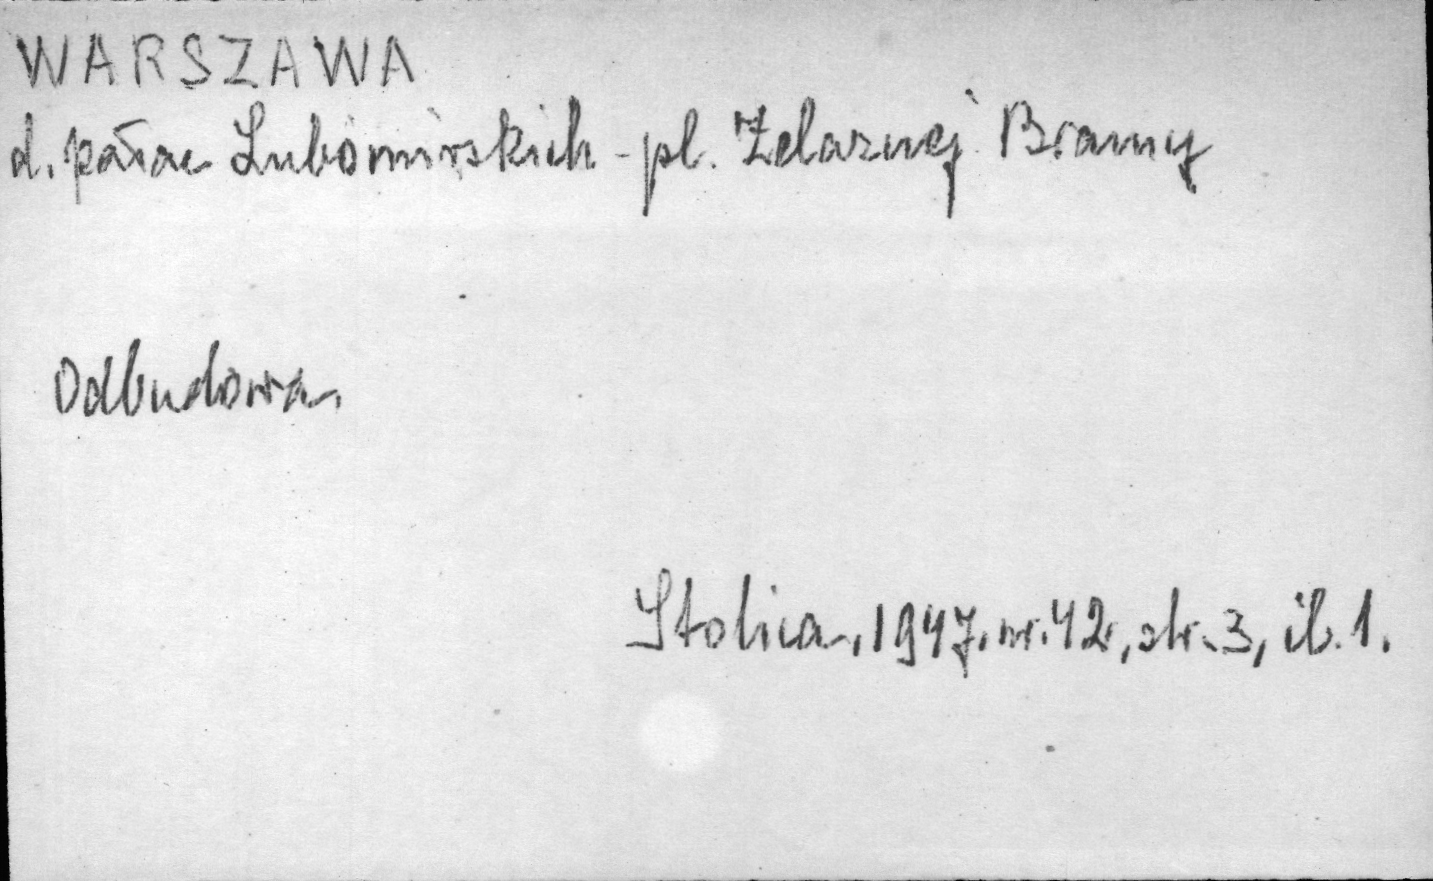 WARSZAWA
d. pałac Lubomirskich - pl. Żelaznej Bramy
Odbudowa.
Stolica, 1947, nr. 42, str. 3, il. 1.